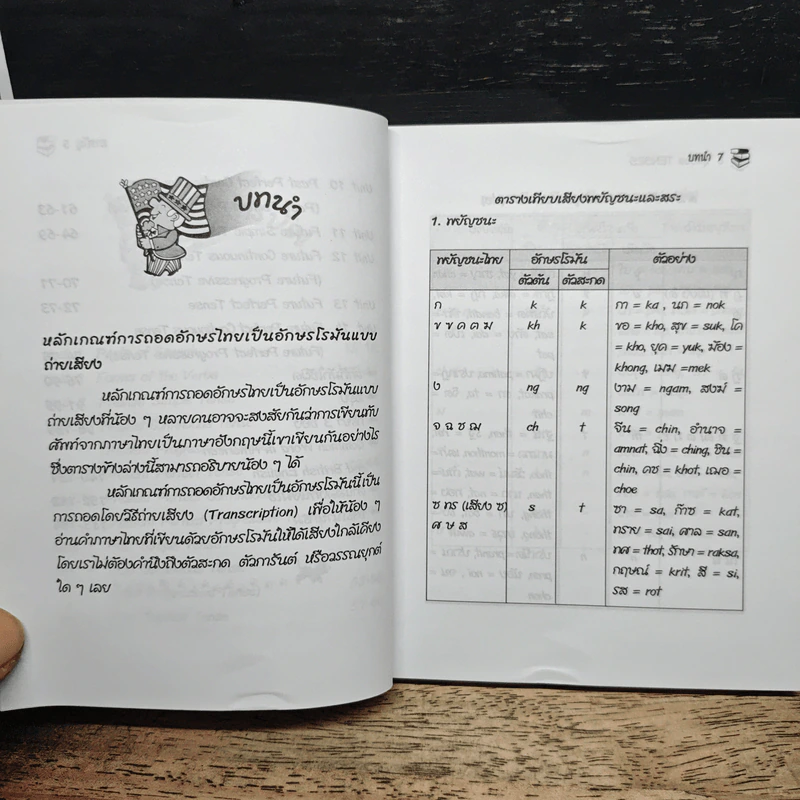 บทนำ
หลักเกณฑ์การถอดอักษรไทยเป็นอักษรโรมันแบบ
ถ่ายเสียง
หลักเกณฑ์การถอดอักษรไทยเป็นอักษรโรมันแบบ
ถ่ายเสียงที่น้อง ๆ หลายคนอาจจะสงสัยกันว่าการเขียนทับ
ศัพท์จากภาษาไทยเป็นภาษาอังกฤษนี้เขาเขียนกันอย่างไร
ซึ่งตารางข้างล่างนี้สามารถอธิบายน้อง ๆ ได้
หลักเกณฑ์การถอดอักษรไทยเป็นอักษรโรมันนี้เป็น
การถอดโดยวิธีถ่ายเสียง (Transcription) เพื่อให้น้อง ๆ
อ่านคำภาษาไทยที่เขียนด้วยอักษรโรมันให้ได้เสียงใกล้เคียง
โดยเราไม่ต้องคำนึงถึงตัวสะกด ตัวการันต์ หรือวรรณยุกต์
ใด ๆ เลย
บทนำ 7
ตารางเทียบเสียงพยัญชนะและสระ
1. พยัญชนะ
พยัญชนะไทย อักษรโรมัน ตัวอย่าง
ตัวต้น ตัวสะกด
ก k k กา = ka , นก = nok
ข ฃ ค ฅ ฆ kh k ขอ = kho, สุข = suk, โค
= kho, ยุค = yuk, ฆ้อง =
khong, เมฆ =mek
ง ng ng งาม = ngam, สงฆ์ =
song
จ ฉ ช ฌ ch t จีน = chin, อำนาจ =
amnat, ฉิ่ง = ching, ชิน =
chin, คช = khot, เฌอ =
choe
ซ ทร (เสียง ซ) s t ซา = sa, ก๊าซ = kat,
ศ ษ ส ทราย = sai, ศาล = san,
ทศ = thot, รักษา = raksa,
กฤษณ์ = krit, สี = si,
รส = rot